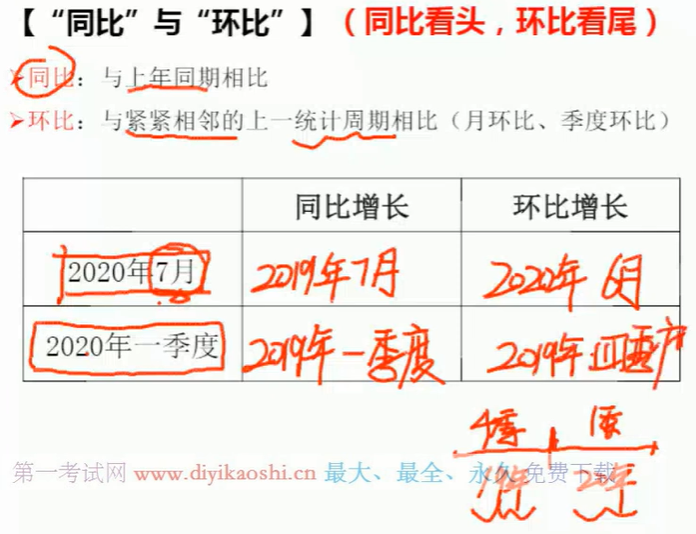 【“同比”与“环比”】（同比看头，环比看尾）
➢同比：与上年同期相比
➢环比：与紧紧相邻的上一统计周期相比（月环比、季度环比）
同比增长 环比增长
2020年7月 2019年7月 2020年6月
2020年一季度 2019年一季度 2019年四季度
4季 1季
第一考试网 www.diyikaoshi.cn 最大、最全、永久免费下载
19年 20年